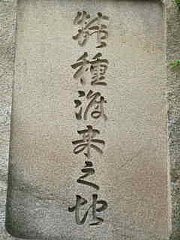 綿種渡来之地